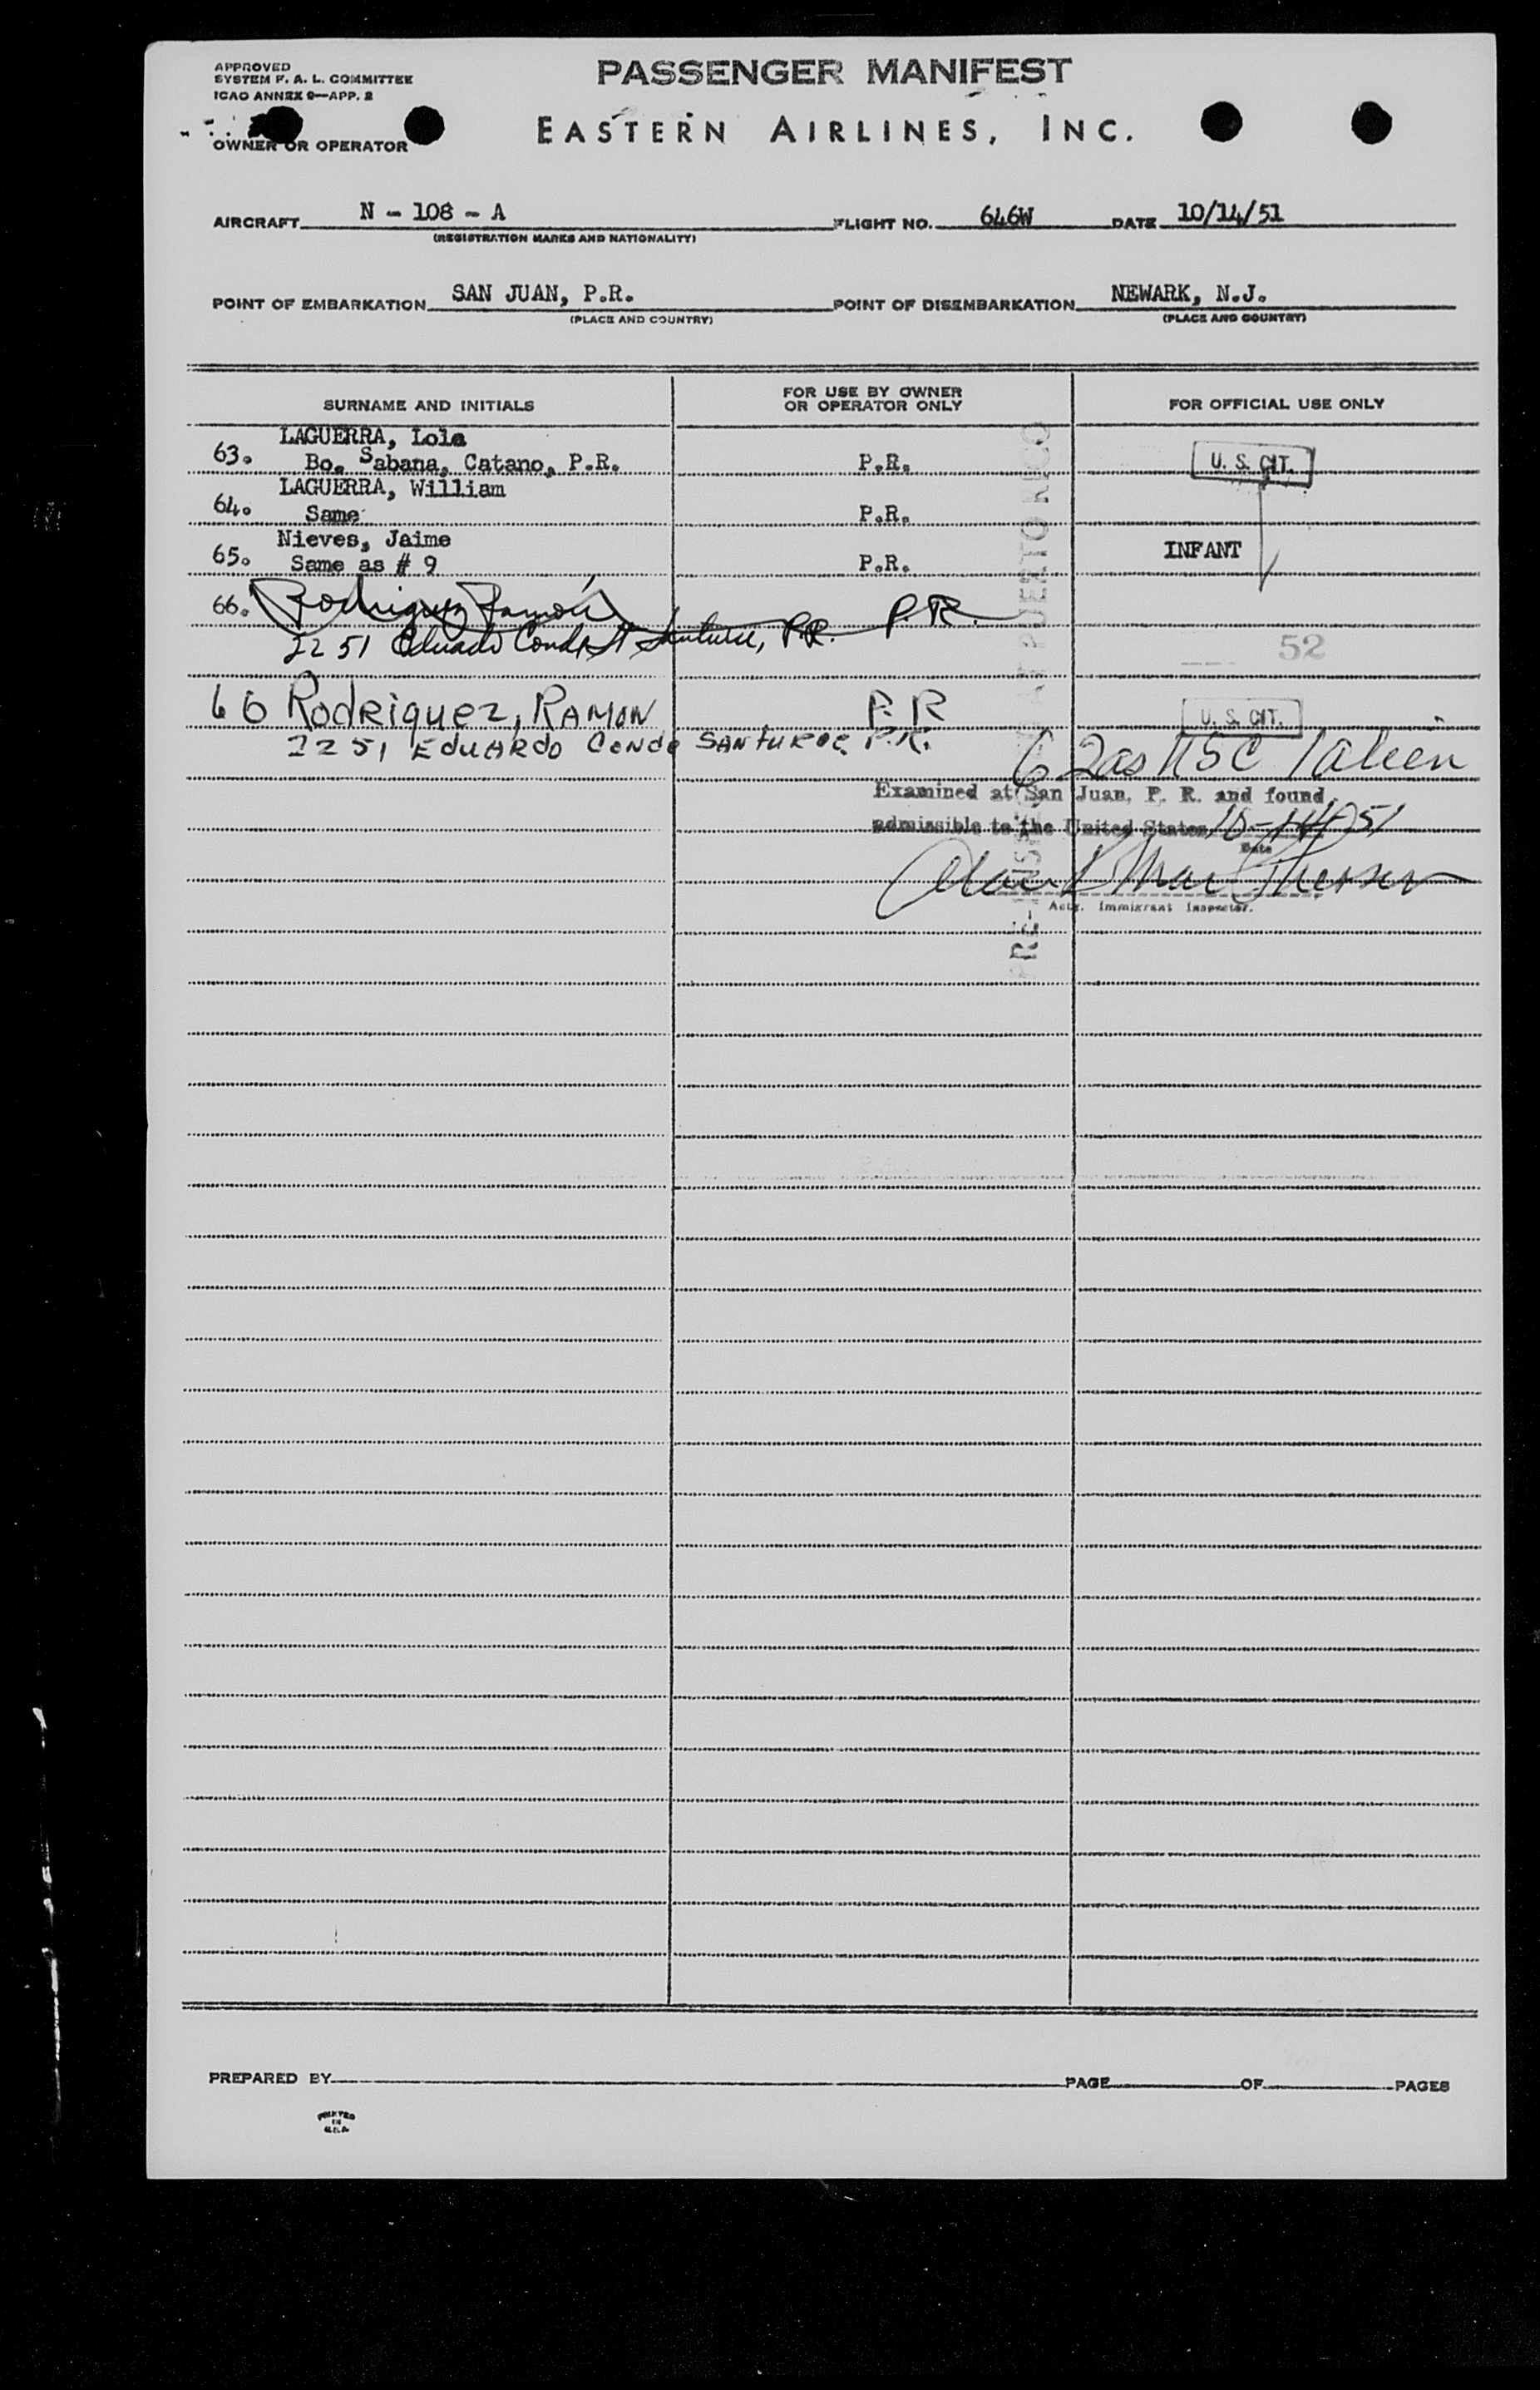 APPROVED
SYSTEM F. A. L. COMMITTEE
ICAO ANNEX 9—APP. 2
PASSENGER MANIFEST
EASTERN AIRLINES, INC.
OWNER OR OPERATOR
AIRCRAFT N - 108 - A FLIGHT NO. 646W DATE 10/14/51
(REGISTRATION MARKS AND NATIONALITY)
POINT OF EMBARKATION SAN JUAN, P.R. POINT OF DISEMBARKATION NEWARK, N.J.
(PLACE AND COUNTRY) (PLACE AND COUNTRY)
SURNAME AND INITIALS FOR USE BY OWNER OR OPERATOR ONLY FOR OFFICIAL USE ONLY
63. LAGUERRA, Lola
Bo. Sabana, Catano, P.R. P.R. U. S. CIT.
64. LAGUERRA, William
Same P.R.
65. Nieves, Jaime INFANT
Same as # 9 P.R.
66. Rodriguez Ramón P.R.
2251 Eduardo Conde St Santurce, P.R.
52
66 Rodriguez, RAMON P.R U. S. CIT.
2251 EDUARDO CONDE SANTURCE P.R.
62
Examined at San Juan, P. R. and found
admissible to the United States 10-14-51
Date
Actg. Immigrant Inspector.
PREPARED BY PAGE OF PAGES
PRINTED
IN
U.S.A.